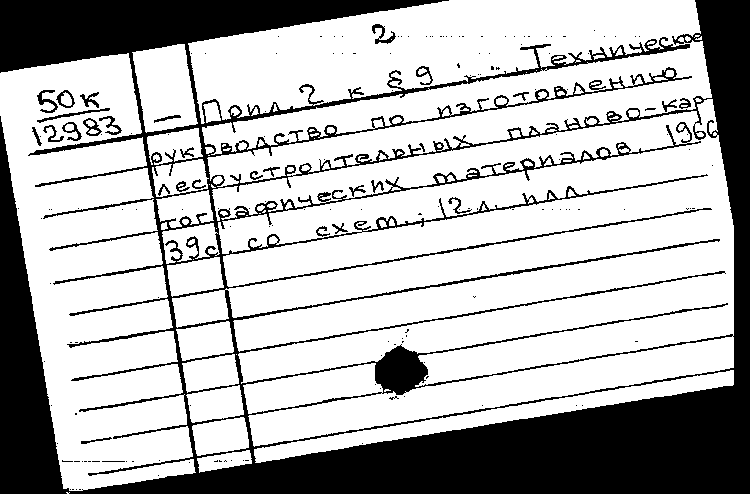 2
50к
12983
— Прил. 2 к § 9 Техническое
руководство по изготовлению
лесоустроительных планово-кар
тографических материалов. 1966
39с. со схем.; 12л. илл.